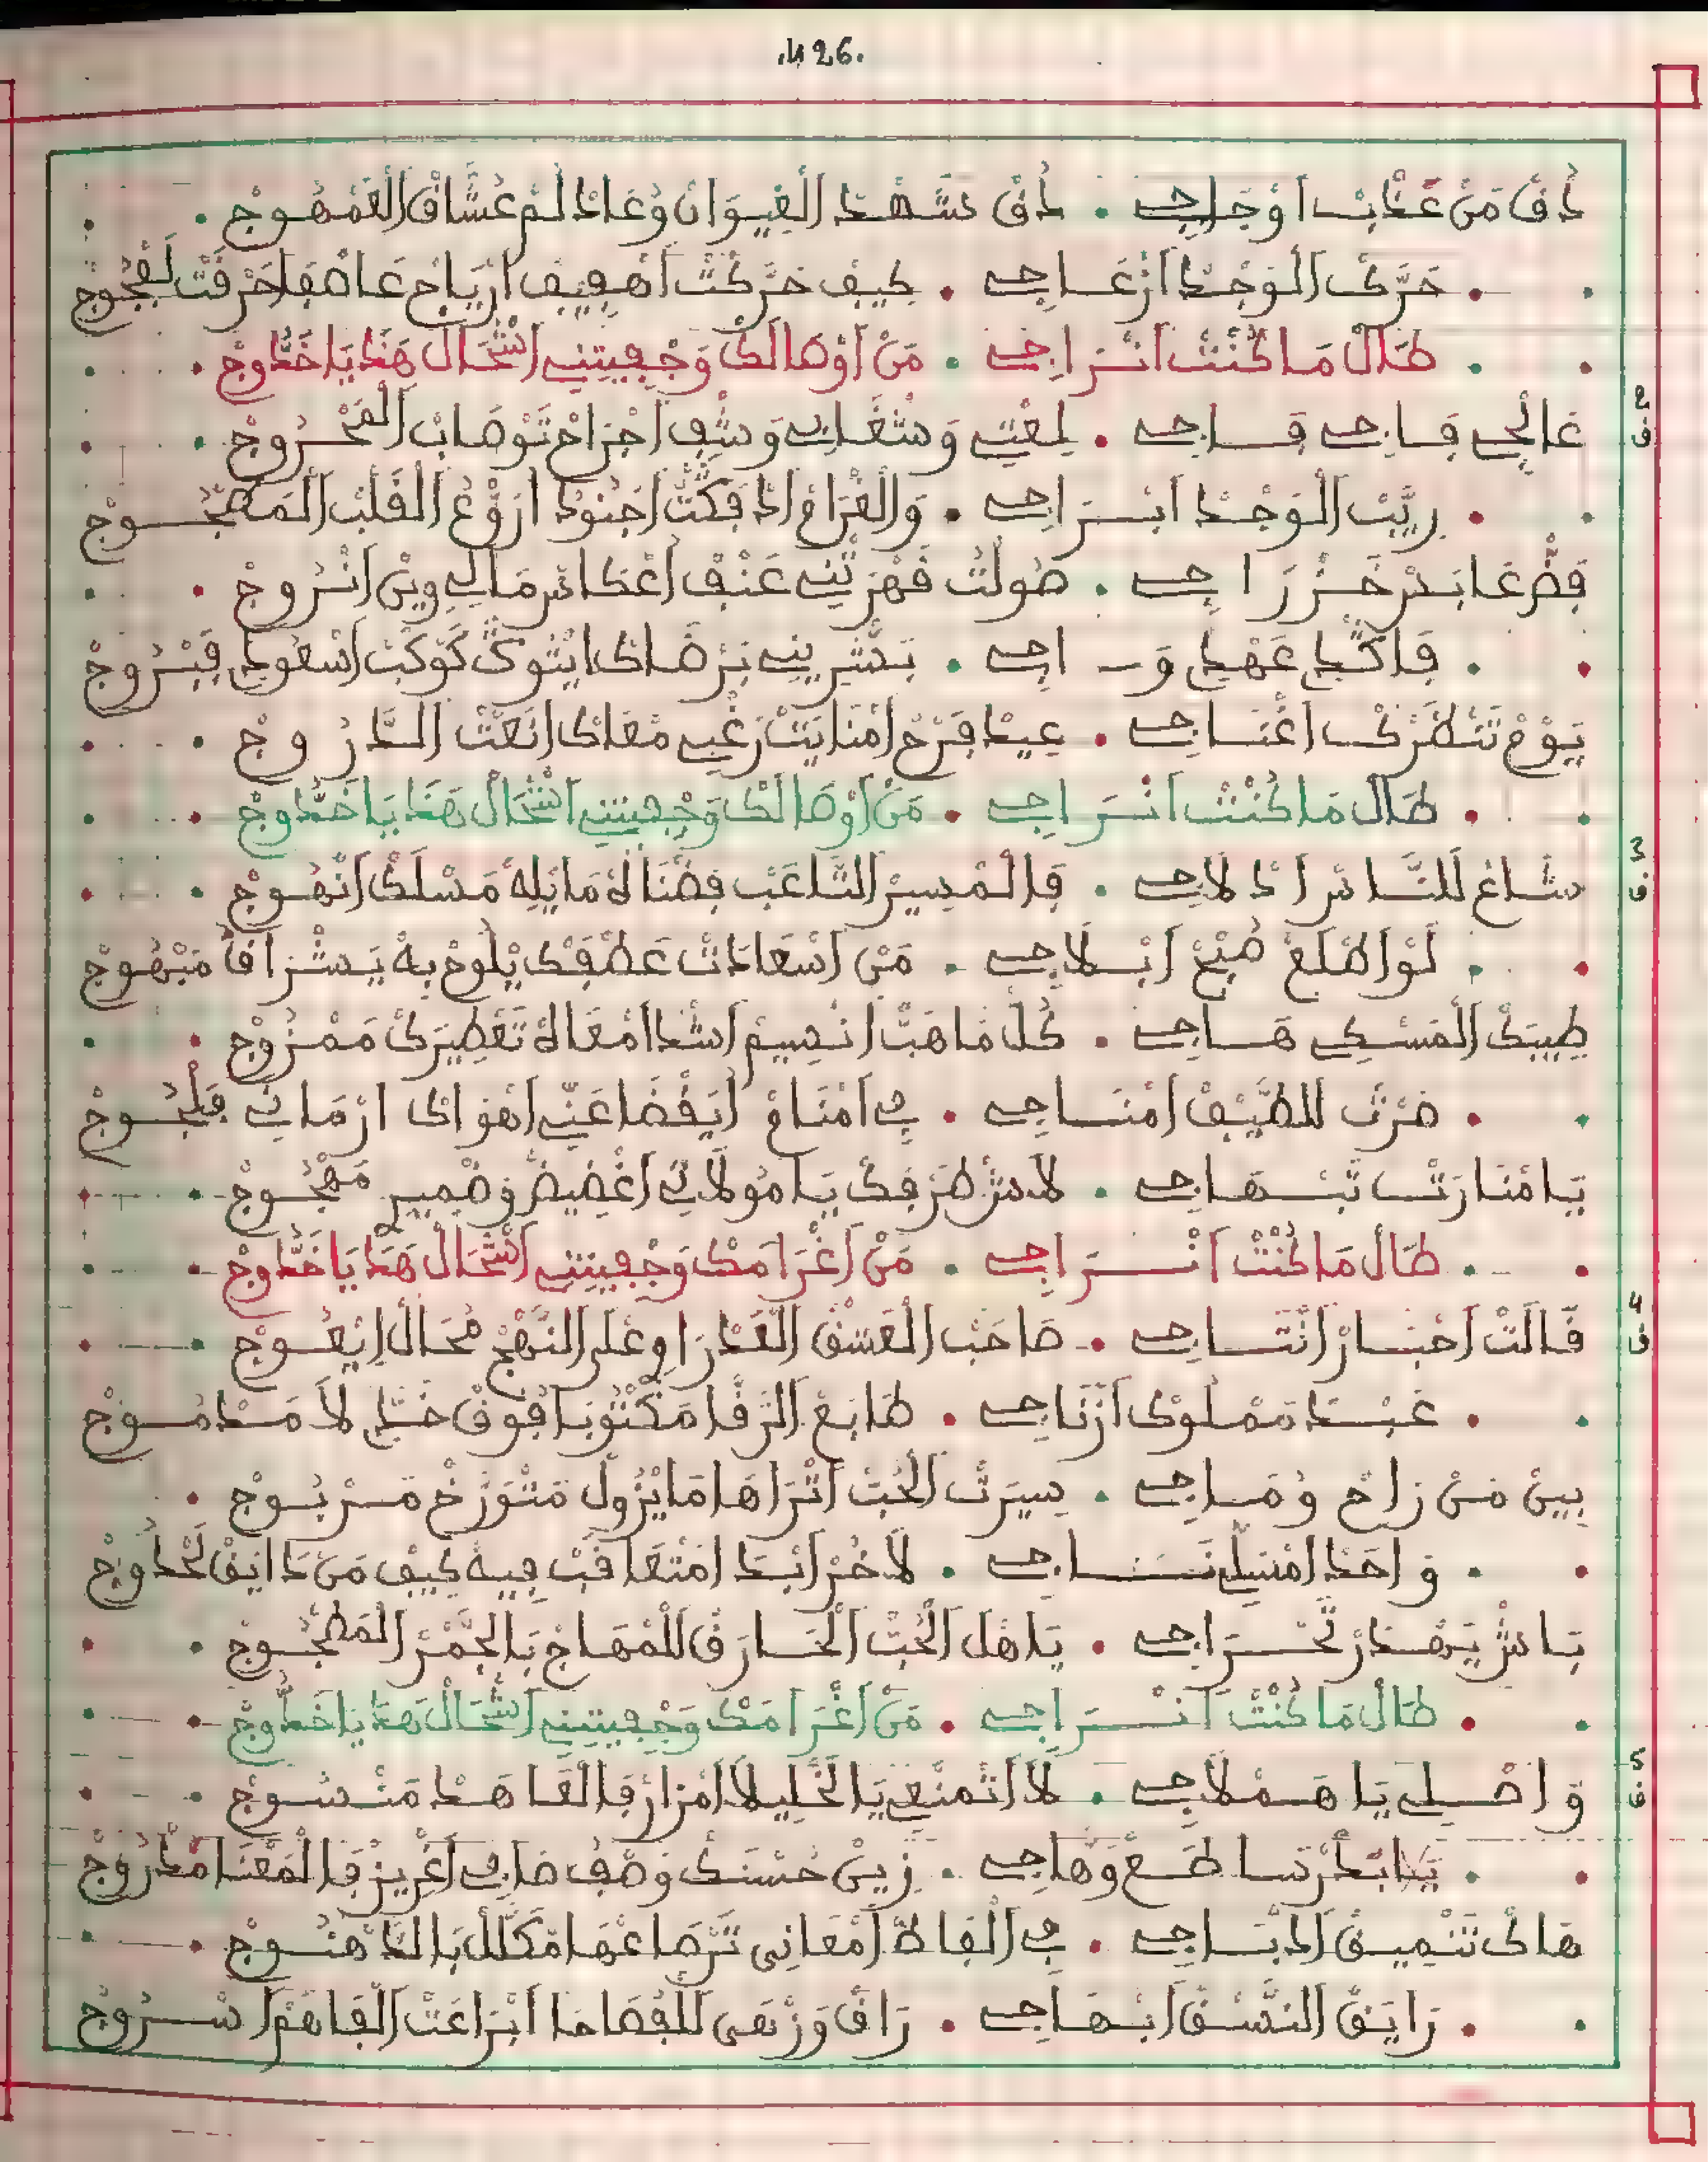 .426.
ذَاقْ مَنْ عَذَّبْ أَوْجَاجِي . ذَاقْ شَهْدْ الْغِيوَانْ وُعَادْ لَمْ عُشَّاقْ الْغَمْهُوجْ
حَرَّكْ الْوَجْدْ أَزْعَاجِي . كِيفْ حَرّْكَتْ أَهْفِيفْ أَرْيَاحْ عَاصْفَا حَرْقَتْ لَفْجُوجْ
طَالْ مَا كُنْتْ أَنْرَاجِي . مَنْ أَوْصَالَكْ وَجْفِيتِنِي أَشْحَالْ هَذَا يَا خَدُّوجْ
2 ق
عَالْجِي قَاجِي قَاجِي . لِعْتِي وَسْقَامِي وَشْفِ أَجْرَاحْ تَوْصَابْ الْمَحْرُوجْ
رِيّْتْ الْوَجْدْ أَبْرَاجِي . وَالْغْرَامْ إِذَا فَكَّتْ أَجْنُودُ أَرَوَّعْ الْقَلْبْ الْمَهْجُوجْ
صُولْتُ قَهْرَتْنِي عَنْفْ أَعْسَاكَرْ مَالِي وِينْ أَنْرُوجْ
فَاكْدِ عَهْدِ وَاجِي . بَشّْرِينِي بَرْضَاكْ إِيضْوِي كَوْكَبْ أَسْعُودِي فَبْرُوجْ
يَوْمْ نَنْظَرْكْ أَغْنَاجِي . عِيدْ فَرْحْ أَمْنَايَتْ رَغْبِي مْعَاكْ أَنَعْتْ الدَّرُوجْ
طَالْ مَا كُنْتْ أَنْرَاجِي . مَنْ أَوْصَالَكْ وَجْفِيتِنِي أَشْحَالْ هَذَا يَا خَدُّوجْ
3 ق
شَاعْ لَلنَّاسْ أَدْلَاجِي . فَالْمْسِيرْ التَّاعَبْ فَضْنَاكْ مَا يْلِهْ مَسْلَكْ أَنْهُوجْ
لَوْ أَطْلَعْ صُبْحْ أَبْلَاجِي . مَنْ أَسْعَادَاتْ عَطْفَكْ يْلُوحْ بِهْ يَشْرَاقْ مَبْهُوجْ
طِيبَكْ الْمَسْكِي هَاجِي . كُلّْ مَا هَبّْ أَنْسِيمْ أَشْدَا مْعَاهْ تَعْطِيرَكْ مَمْزُوجْ
ضَرْتْ لَلطِّيفْ أَمْنَاجِي . فِ أَمْنَامْ أَيَقْضَا عَنِّي أَهْوَاكْ أَرْمَانِي فَلْجُوجْ
يَا مْنَارَتْ تَبْهَاجِي . لَاشْ طَرْفَكْ يَا مُولَاتِي أَغْضِيضْ وَضْمِيرِ مَهْجُوجْ
طَالْ مَا كُنْتْ أَنْرَاجِي . مَنْ أَغْرَامَكْ وَجْفِيتِنِي أَشْحَالْ هَذَا يَا خَدُّوجْ
4 ق
قَالَتْ أَحْبَارْ أَنْتَاجِي . صَاحَبْ الْعَشْقْ الْعَدْرَاوِي عْلَى النَّهْجْ مُحَالْ إِيْعُوجْ
عَبْدْ مَمْلُوكْ أَزْنَاجِي . طَابَعْ الرَّقَّا مَكْتُوبَا فُوقْ خَدِّ لَا مَسْدُوجْ
بِينْ مَنْ رَاحْ وُمَاجِي . سِيرَتْ الْحُبّْ أَتْرَاهَا مَا يْزُولْ مَتْوَرَّخْ مَسْرُبُوجْ
وَاحَدْ أَمْسَلِّي نَاجِي . لَاخُرْ أَبْدَا مَتْعَاقَبْ فِيهْ كِيفْ مَنْ دَايَقْ لَحْدُوجْ
بَاشْ يَهْدَرْ تَحْرَاجِي . يَاهَلْ الْحُبّْ الْحَارَقْ لَلْمْهَاجْ بَالْجَمْرْ الْمَطْجُوجْ
طَالْ مَا كُنْتْ أَنْرَاجِي . مَنْ أَغْرَامَكْ وَجْفِيتِنِي أَشْحَالْ هَذَا يَا خَدُّوجْ
5 ق
وَاصْلِي يَا هَمْلَاجِي . لَا أَتْمَنْعِي يَالْخْلِيلَا أَمْزَارْ فَالْعَاهَدْ مَنْسُوجْ
يَا بَدْرْ سَاطَعْ وَهَّاجِي . زِينْ حُسْنَكْ وَصْفُ ضَافِي أَغْرِيزْ فَالْمَعْنَا مَدْرُوجْ
هَاكْ تَنْمِيقْ أَدْبَاجِي . فِ أَلْفَاظْ أَمْعَانِي تَرْصَاعْهَا مْكَلَّلْ بَالدَّهْنُوجْ
رَايَقْ النَّسْقْ أَبْهَاجِي . رَاقْ وَزْهَى لَلْفُصَاحَا أَبْرَاعَتْ الْفَاهَمْ أَسْرُوجْ